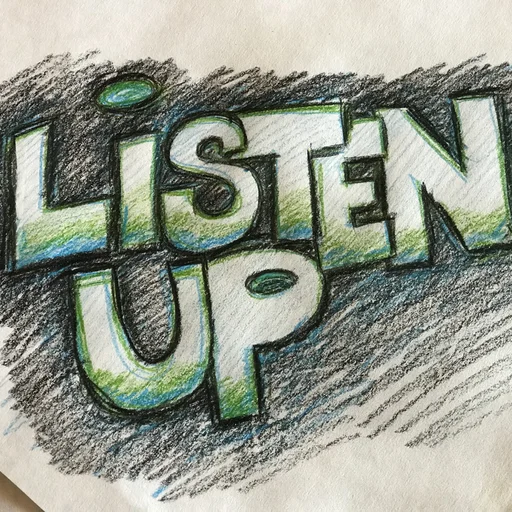 LiSTEN
UP